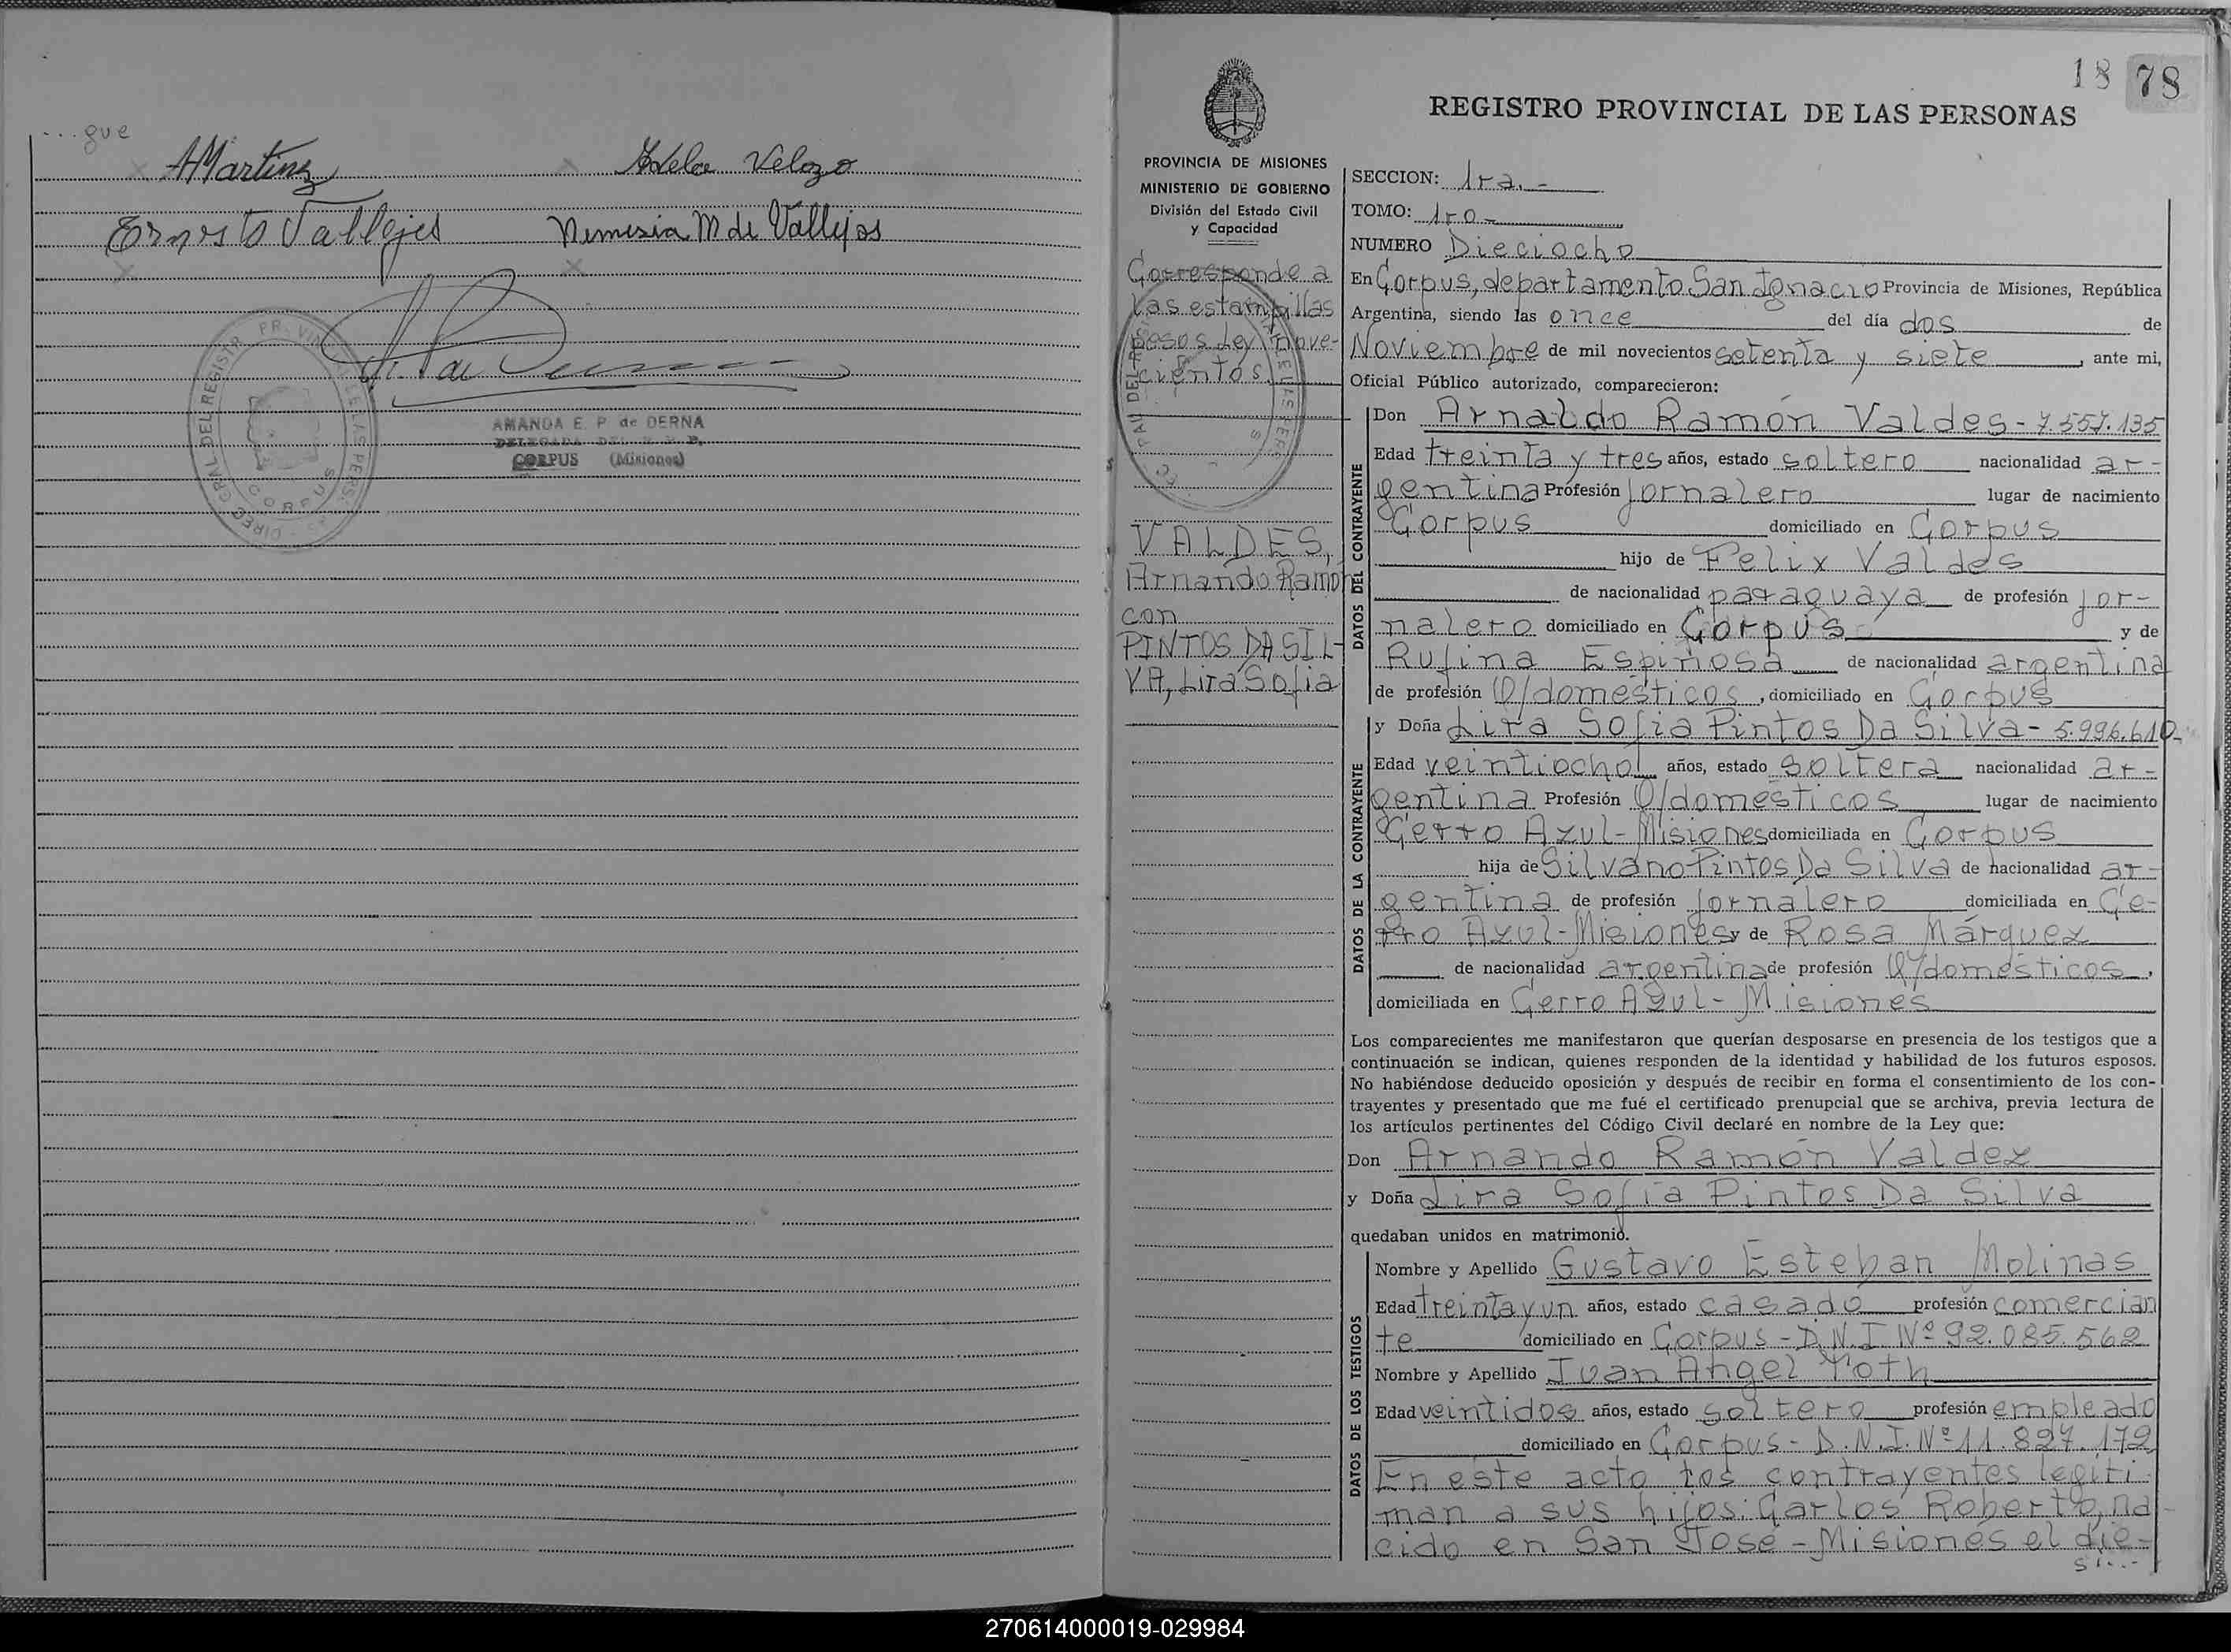 ...gue
AMartinz Adela Velozo
Ernesto Vallejos Nemesia M de Vallejos
AMANDA E. P. de DERNA
DELEGADA DEL R. P. P.
CORPUS (Misiones)
CORPUS
18 78
REGISTRO PROVINCIAL DE LAS PERSONAS
PROVINCIA DE MISIONES
MINISTERIO DE GOBIERNO
División del Estado Civil
y Capacidad
Corresponde a
las estampillas
pesos Ley nove-
cientos.
VALDES,
Arnando Ramon
con
PINTOS DA SIL-
VA, Lira Sofia
SECCION: 1ra.-
TOMO: 1ro-
NUMERO Dieciocho
En Corpus, departamento San Ignacio Provincia de Misiones, República
Argentina, siendo las once del día dos de
Noviembre de mil novecientos setenta y siete, ante mi,
Oficial Público autorizado, comparecieron:
DATOS DEL CONTRAYENTE
Don Arnaldo Ramón Valdes - 7.557.135
Edad treinta y tres años, estado soltero nacionalidad ar-
gentina Profesión jornalero lugar de nacimiento
Corpus domiciliado en Corpus
hijo de Felix Valdes
de nacionalidad paraguaya de profesión jor-
nalero domiciliado en Corpus y de
Rufina Espinosa de nacionalidad argentina
de profesión Q/domésticos, domiciliado en Corpus
DATOS DE LA CONTRAYENTE
y Doña Lira Sofia Pintos Da Silva - 5.996.610-
Edad veintiocho años, estado soltera nacionalidad ar-
gentina Profesión Q/domésticos lugar de nacimiento
Cerro Azul - Misiones domiciliada en Corpus
hija de Silvano Pintos Da Silva de nacionalidad ar-
gentina de profesión jornalero domiciliada en Ce-
rro Azul - Misiones y de Rosa Márquez
de nacionalidad argentina de profesión Q/domésticos,
domiciliada en Cerro Azul - Misiones
Los comparecientes me manifestaron que querían desposarse en presencia de los testigos que a
continuación se indican, quienes responden de la identidad y habilidad de los futuros esposos.
No habiéndose deducido oposición y después de recibir en forma el consentimiento de los con-
trayentes y presentado que me fué el certificado prenupcial que se archiva, previa lectura de
los artículos pertinentes del Código Civil declaré en nombre de la Ley que:
Don Arnando Ramón Valdez
y Doña Lira Sofía Pintos Da Silva
quedaban unidos en matrimonio.
DATOS DE LOS TESTIGOS
Nombre y Apellido Gustavo Esteban Molinas
Edad treinta y un años, estado casado profesión comercian
te domiciliado en Corpus - D.N.I Nº 92.085.562
Nombre y Apellido Juan Angel Toth
Edad veintidos años, estado soltero profesión empleado
domiciliado en Corpus - D.N.I. Nº 11.827.172
En este acto los contrayentes legiti
man a sus hijos: Carlos Roberto, na
cido en San José - Misiones el die-
si...-
270614000019-029984